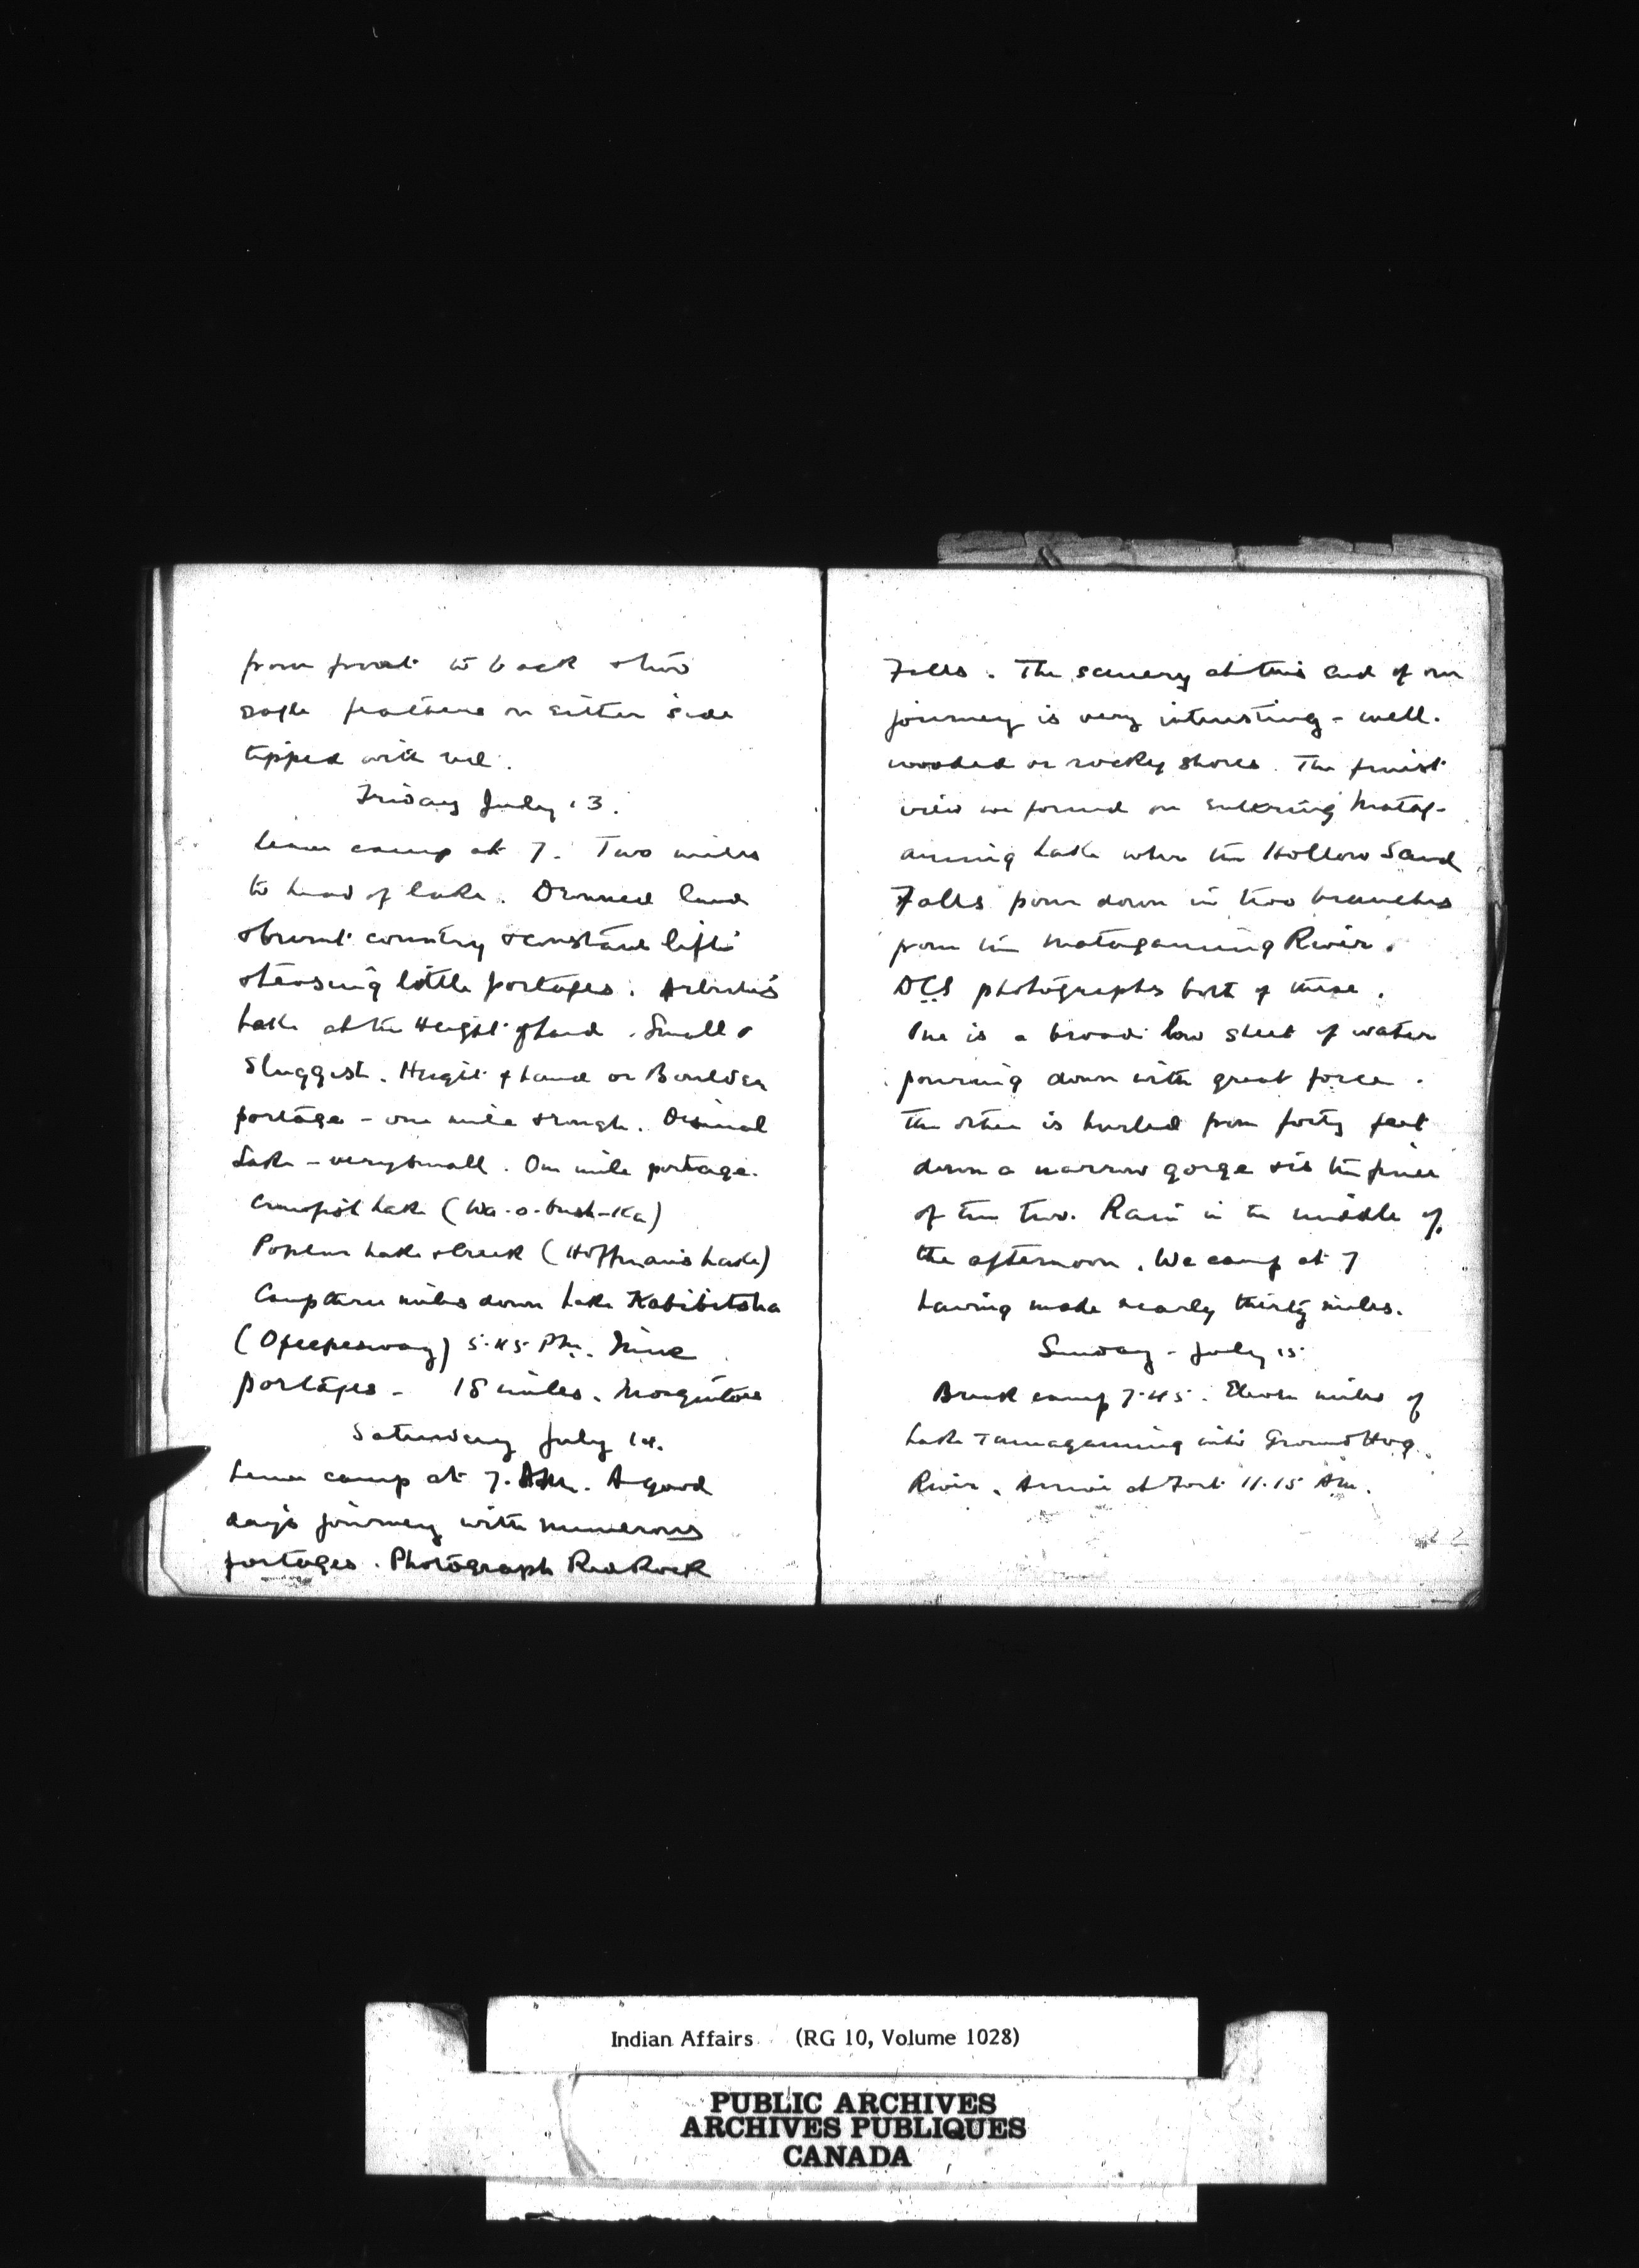 from front to back & two
eagle feathers on either side
tipped with red.
Friday July 13.
Leave camp at 7. Two miles
to head of lake. Drowned land
& burnt country & constant lifts
& teasing little portages.
Lake at the Height of Land. Small &
Sluggish. Height of Land or Boulder
portage - one mile & rough. Dismal
Lake - very small. One mile portage.
Lake (Wa-o-bush-Ka)
Poplar Lake & Creek (Hoffman's Lake)
Camp three miles down Lake Kabibitoha
(Opeepesway) 5.45 P.M. Nine
portages - 18 miles. Mosquitoes
Saturday July 14.
Leave camp at 7. A.M. A good
days journey with numerous
portages. Photograph Red Rock
Falls. The scenery at this end of our
journey is very interesting - well.
wooded or rocky shores. The finest
view we found on entering Matag-
aming Lake where the Hollow Sand
Falls pour down in two branches
from the Matagaming River.
DCS photographs both of these.
One is a broad low sheet of water
pouring down with great force.
The other is hurled from forty feet
down a narrow gorge & is the finer
of the two. Rain in the middle of
the afternoon. We camp at 7
having made nearly thirty miles.
Sunday - July 15
Break camp 7.45. Eleven miles of
Lake into Ground Hog
River. Arrive at Fort 11.15 A.M.
Indian Affairs (RG 10, Volume 1028)
PUBLIC ARCHIVES
ARCHIVES PUBLIQUES
CANADA